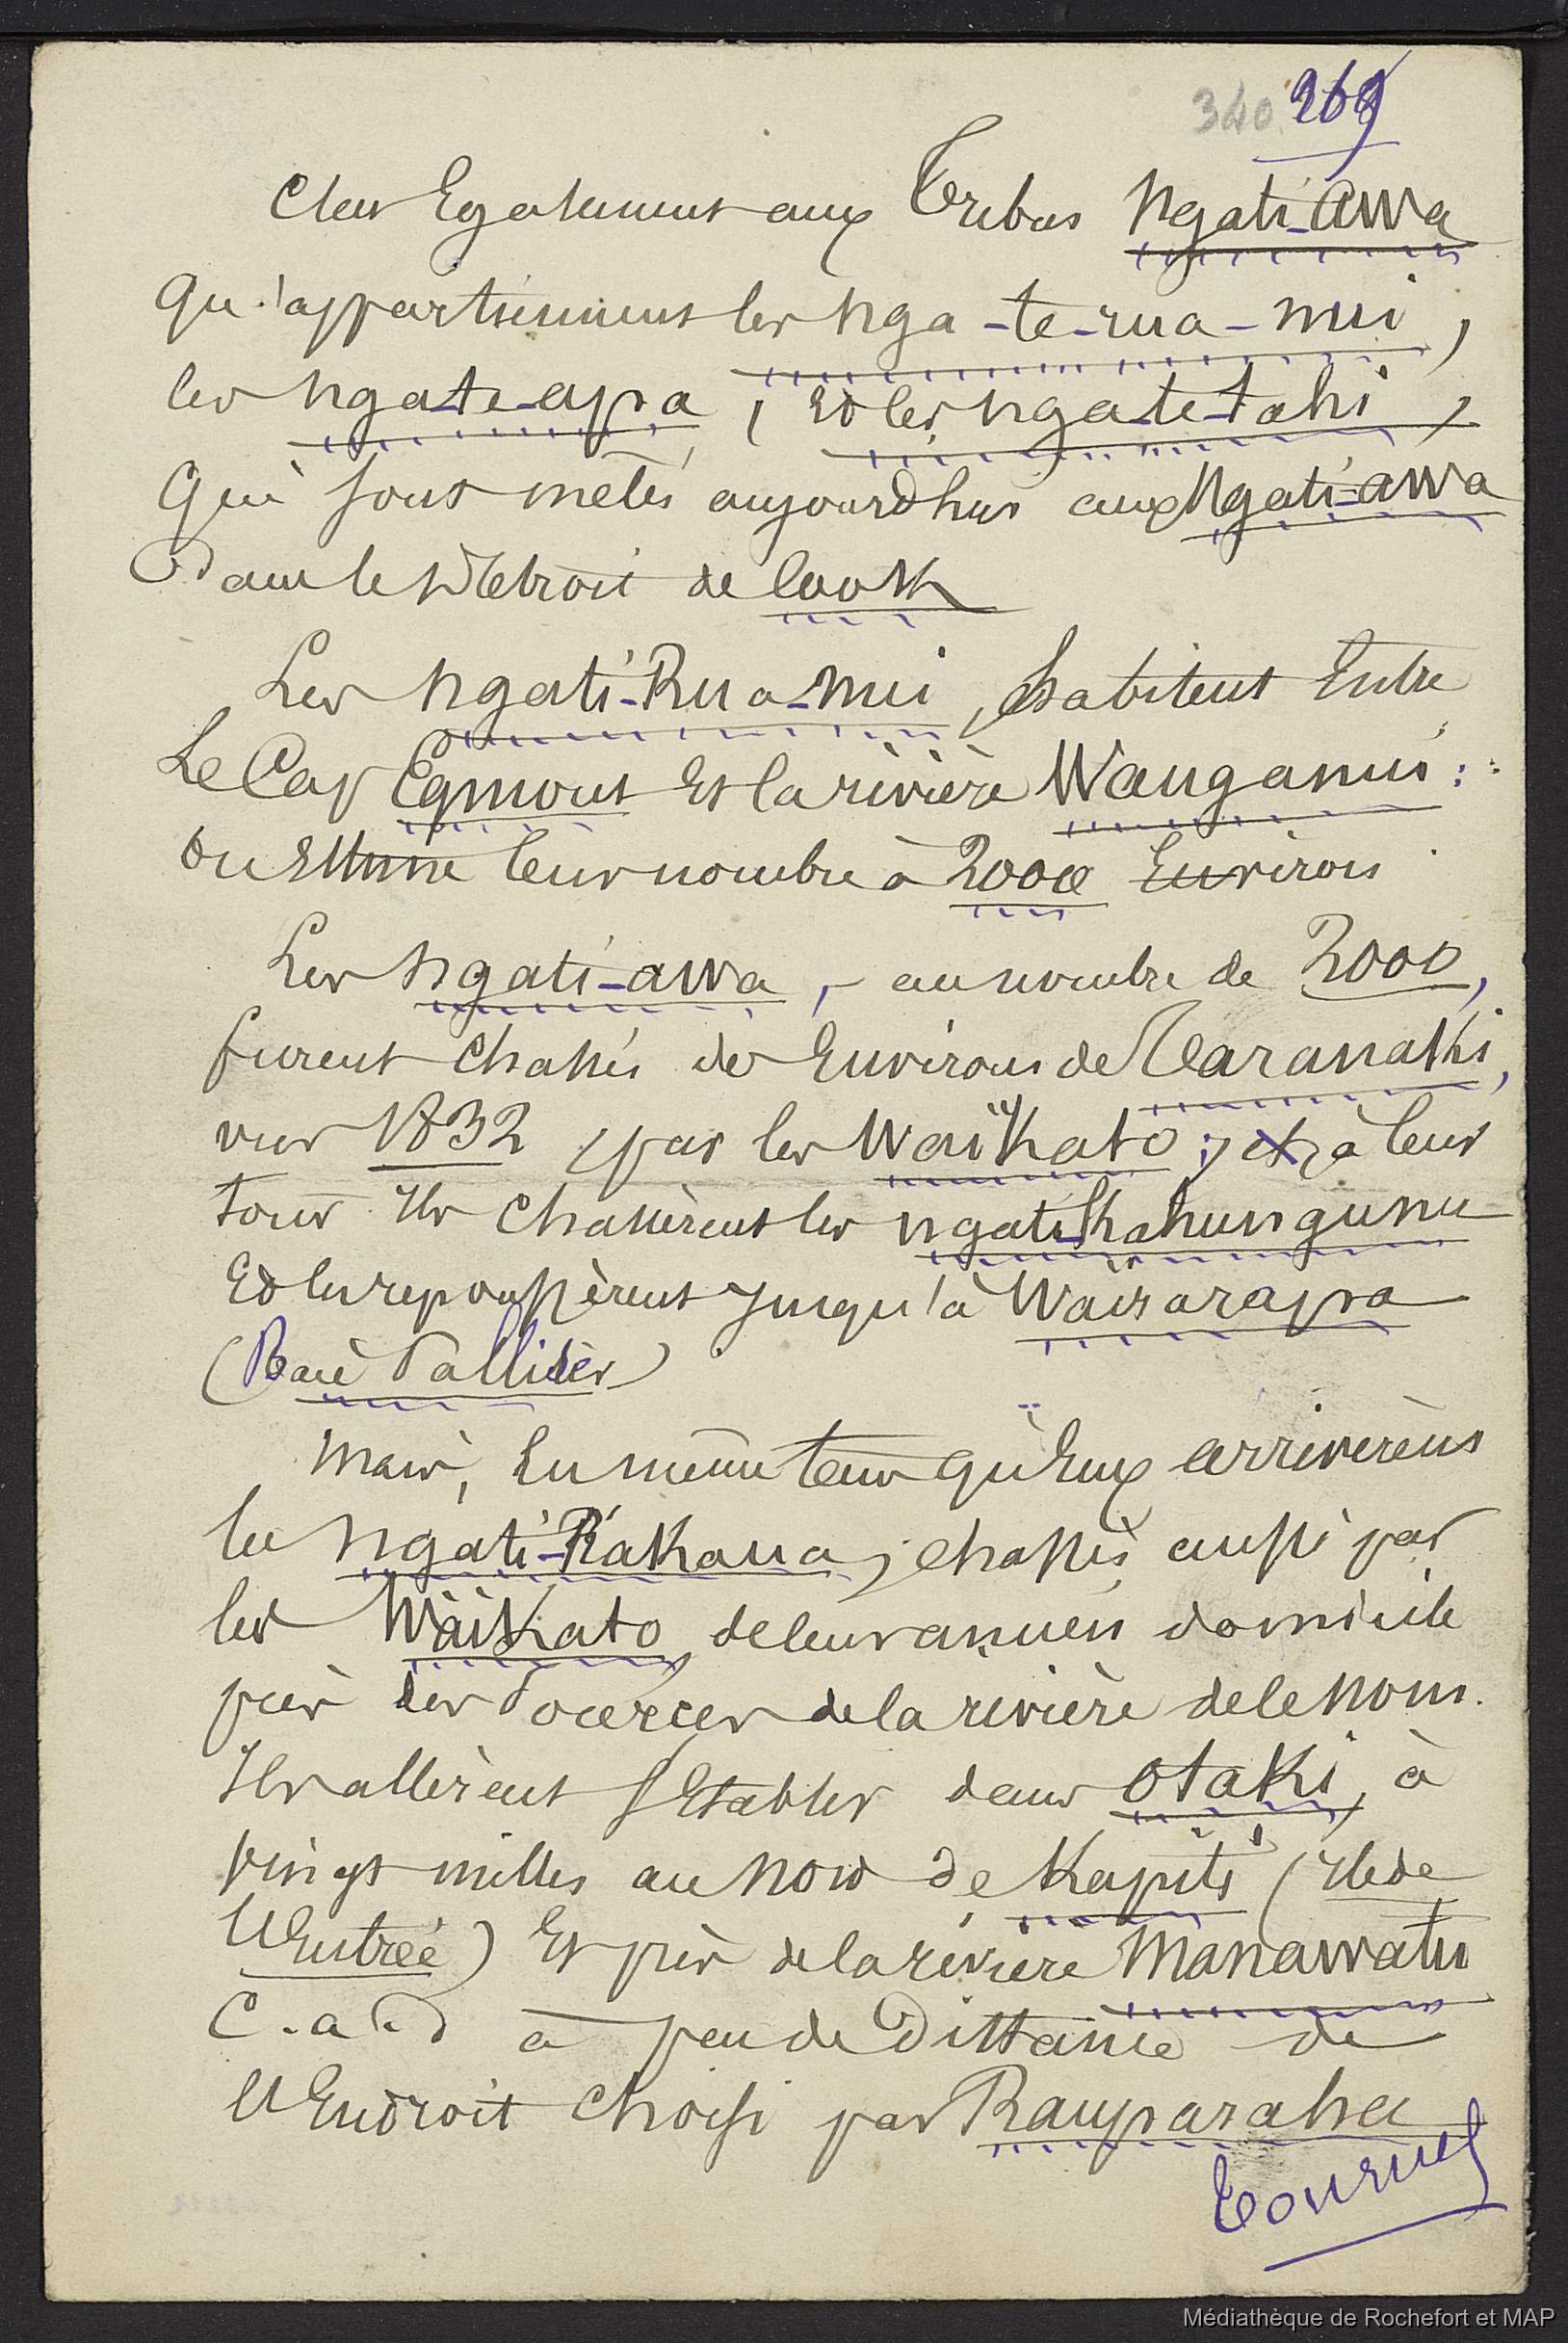 340 269
C'est Egalement aux Tribus Ngati-awa
Qu'appartiennent les nga-te-rua-mui,
les ngate-apa, Et les ngate-tahi,
Qui sont mêlés aujourd'hui aux Ngati-awa
Dans le Détroit de Cook
Les ngati-Rua-mui, habitent Entre
Le Cap Egmont Et la rivière Wanganui:
on Estime leur nombre à 2000 Environ
Les ngati-awa, au nombre de 2000,
furent chassés des Environs de Taranaki,
vers 1832, par les Waïkato; et, à leur
tour Ils chassèrent les ngati-Kahungunu
Et les repoussèrent jusqu'à Wairarapa
(Baie Palliser)
Mais, En même tems qu'Eux arrivèrent
les ngati-Rakaua, chassés aussi par
les Waïkato de leur ancien domicile
près des sources de la rivière de ce Nom.
Ils allèrent s'Etablir dans Otaki, à
vingt milles au Nord de Kapiti (Ile de
l'Entrée) Et près de la rivière Manawatu
C.a.d à peu de Distance de
l'Endroit choisi par Rauparaha
Tournez
Médiathèque de Rochefort et MAP